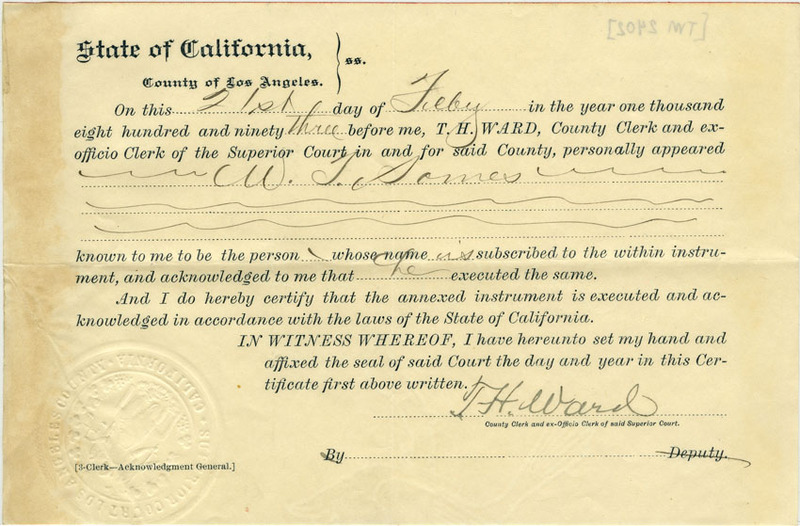 [TW 2402]
State of California,
County of Los Angeles. } ss.
On this 21st day of Feby in the year one thousand
eight hundred and ninety three before me, T. H. WARD, County Clerk and ex-
officio Clerk of the Superior Court in and for said County, personally appeared
W. T. Somes
known to me to be the person whose name is subscribed to the within instru-
ment, and acknowledged to me that he executed the same.
And I do hereby certify that the annexed instrument is executed and ac-
knowledged in accordance with the laws of the State of California.
IN WITNESS WHEREOF, I have hereunto set my hand and
affixed the seal of said Court the day and year in this Cer-
tificate first above written.
T. H. Ward
County Clerk and ex-Officio Clerk of said Superior Court.
By Deputy.
[3-Clerk—Acknowledgment General.]